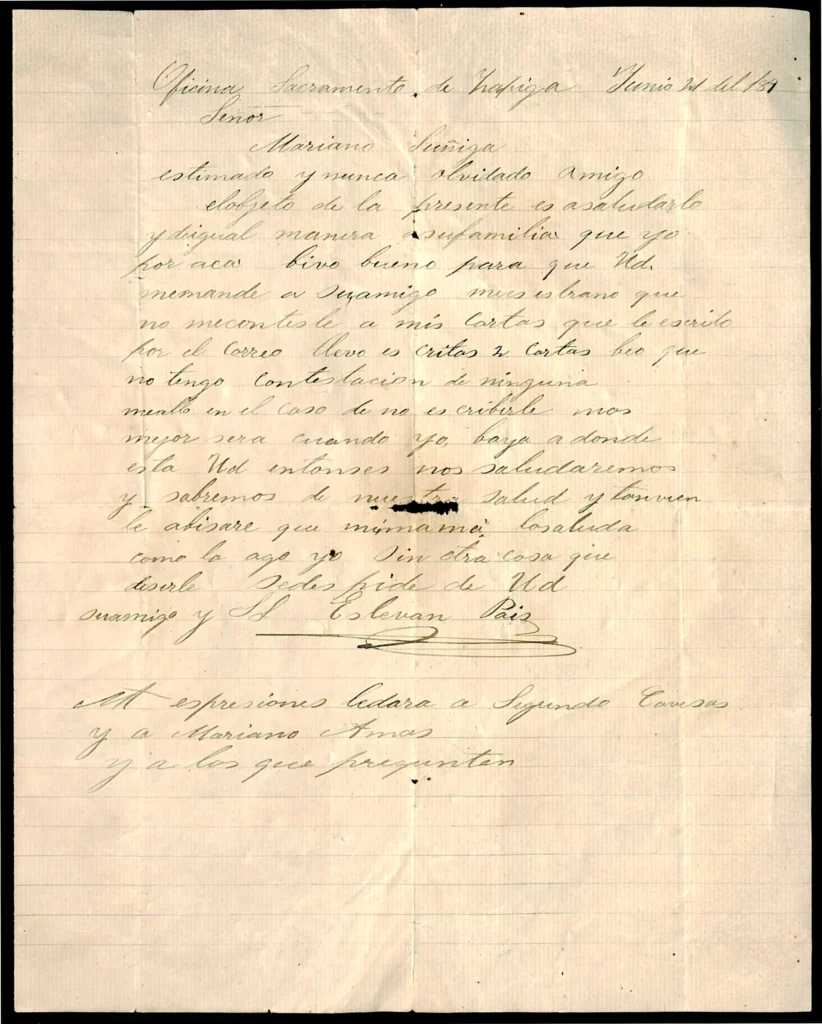 Oficina Sacramento de Zapiga Junio 21 del
Señor
Mariano Suñiga
estimado y nunca olvidado amigo
elobjeto de la presente es asaludarlo
ydeigual manera asufamilia que yo
por aca bivo bueno para que Ud.
memande a suamigo que
no meconteste a mis cartas que le escrito
por el Correo llevo es critas 2 cartas beo que
no tengo contestacion de ninguna
meallo en el caso de no es cribirle mas
mejor sera cuando yo baya adonde
esta Ud entonses nos saludaremos
y sabremos de nuestra salud y tanvien
le abisare que mimamá losaluda
como lo ago yo sin otra cosa que
desirle sedes pide de Ud
suamigo y Estevan Pais
espresiones ledara a Segundo Cavesas
y a Mariano Amas
y a los que pregunten